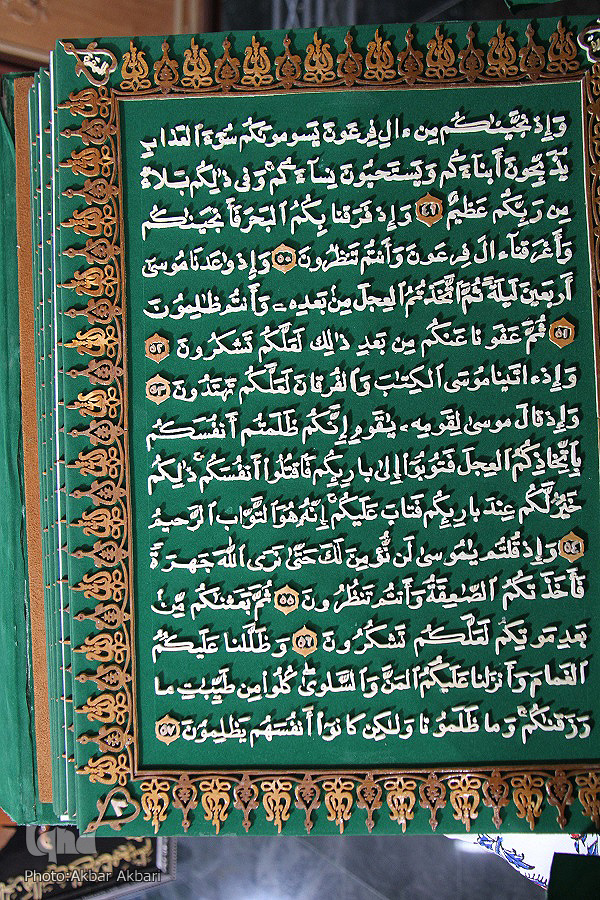 وَإِذ نَجَّينَٰكُم مِن ءالِ فِرعَونَ يَسومونَكُم سُوٓءَ العَذابِ
يُذَبِّحونَ أَبناءَكُم وَيَستَحيُونَ نِسآءَكُم ۚ وَفى ذٰلِكُم بَلاءٌ
مِن رَبِّكُم عَظيمٌ ٤٩ وَإِذ فَرَقنا بِكُمُ البَحرَ فَأَنجَينٰكُم
وَأَغرَقنآ ءالَ فِرعَونَ وَأَنتُم تَنظُرونَ ٥٠ وَإِذ وٰعَدنا موسىٰ
أَربَعينَ لَيلَةً ثُمَّ اتَّخَذتُمُ العِجلَ مِن بَعدِهِ وَأَنتُم ظٰلِمونَ
٥١ ثُمَّ عَفَونا عَنكُم مِن بَعدِ ذٰلِكَ لَعَلَّكُم تَشكُرونَ ٥٢
وَإِذ ءاتَينا موسَى الكِتٰبَ وَالفُرقانَ لَعَلَّكُم تَهتَدُونَ ٥٣
وَإِذ قالَ موسىٰ لِقَومِهِ يٰقَومِ إِنَّكُم ظَلَمتُم أَنفُسَكُم
بِاتِّخاذِكُمُ العِجلَ فَتوبوا إِلىٰ بارِئِكُم فَاقتُلوا أَنفُسَكُم ذٰلِكُم
خَيرٌ لَكُم عِندَ بارِئِكُم فَتابَ عَلَيكُم ۚ إِنَّهُ هُوَ التَّوّابُ الرَّحيمُ
٥٤ وَإِذ قُلتُم يٰموسىٰ لَن نُؤمِنَ لَكَ حَتّىٰ نَرَى اللَّهَ جَهرَةً
فَأَخَذَتكُمُ الصّٰعِقَةُ وَأَنتُم تَنظُرونَ ٥٥ ثُمَّ بَعَثنٰكُم مِن
بَعدِ مَوتِكُم لَعَلَّكُم تَشكُرونَ ٥٦ وَظَلَّلنا عَلَيكُمُ
الغَمامَ وَأَنزَلنا عَلَيكُمُ المَنَّ وَالسَّلوىٰ كُلوا مِن طَيِّبٰتِ ما
رَزَقنٰكُم ۚ وَما ظَلَمونا وَلٰكِن كانوا أَنفُسَهُم يَظلِمونَ ٥٧
iqna
Photo:Akbar Akbari